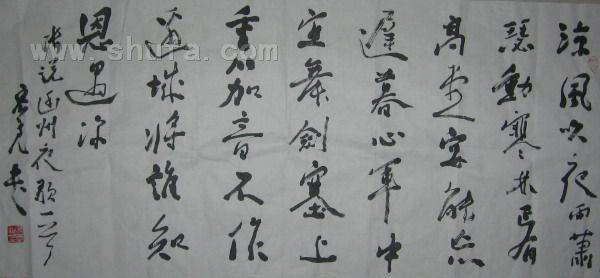 涼風吹夜雨蕭
瑟動寒林正有
高堂宴能忘
遲暮心軍中
宜舞劍塞上
重笳音不作
邊城將誰知
恩遇深
張說幽州夜飲一首
www.shufa.com